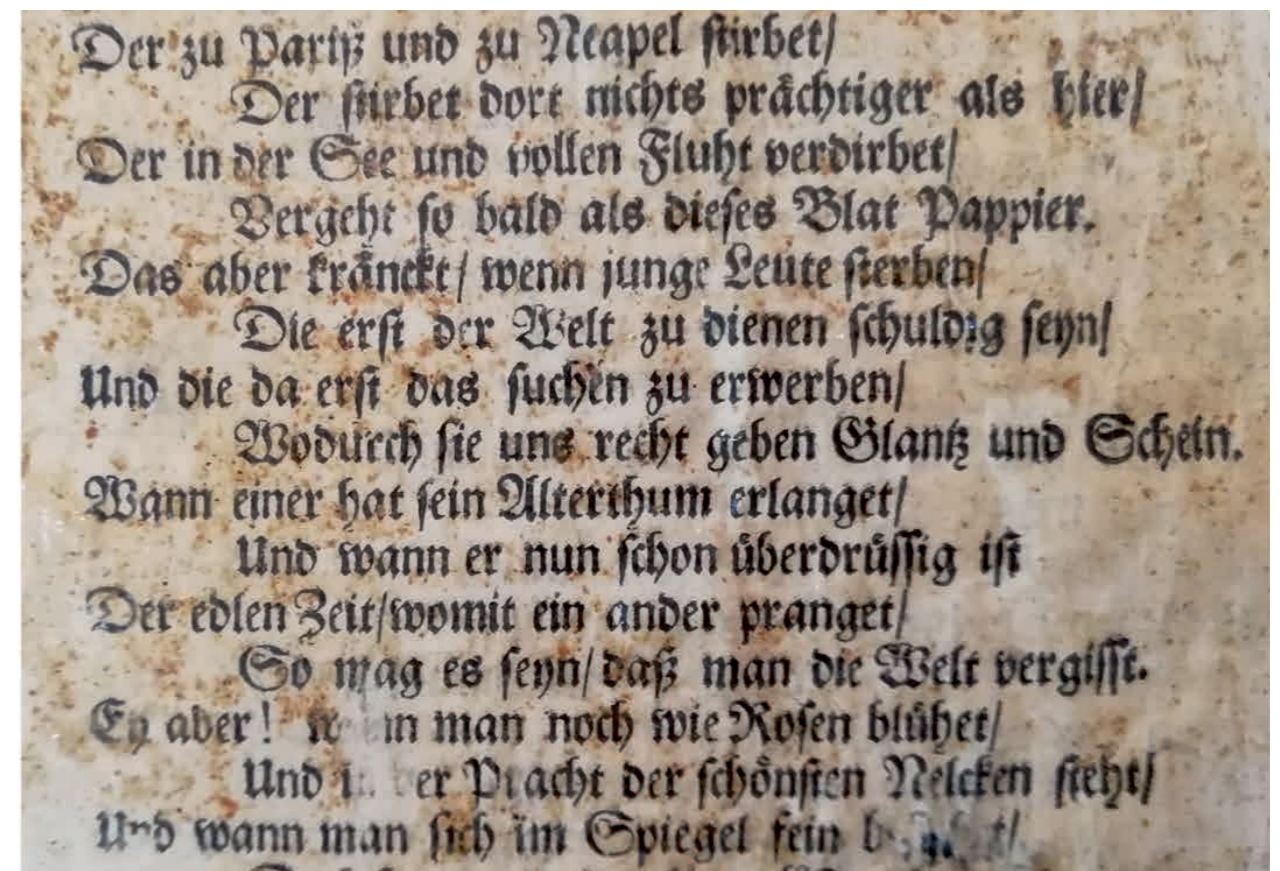 Der zu Pariß und zu Neapel stirbet/
Der stirbet dort nichts prächtiger als hier/
Der in der See und vollen Fluht verdirbet/
Vergeht so bald als dieses Blat Pappier.
Das aber kränckt/ wenn junge Leute sterben/
Die erst der Welt zu dienen schuldig seyn/
Und die da erst das suchen zu erwerben/
Wodurch sie uns recht geben Glantz und Schein.
Wann einer hat sein Alterthum erlanget/
Und wann er nun schon überdrüssig ist
Der edlen Zeit/womit ein ander pranget/
So mag es seyn/daß man die Welt vergisst.
Ey aber! man noch wie Rosen blühet/
Und Pracht der schönsten Nelcken steht/
Und wann man sich im Spiegel fein